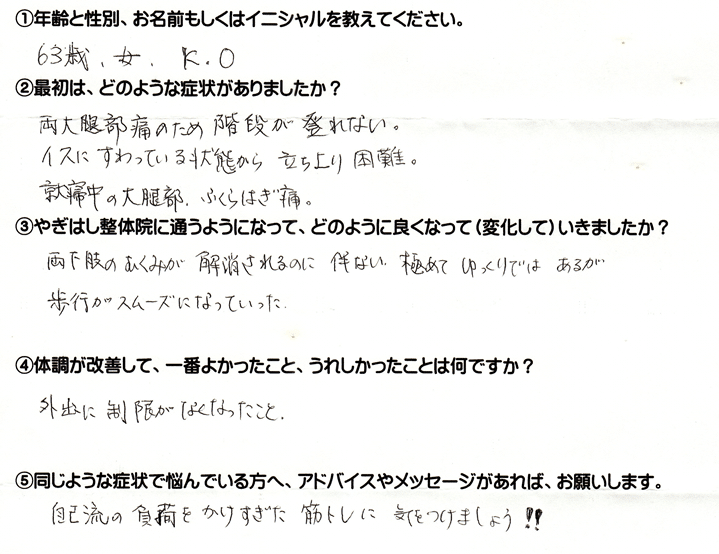 ①年齢と性別、お名前もしくはイニシャルを教えてください。
63歳、女、K.O
②最初は、どのような症状がありましたか？
両大腿部痛のため階段が登れない。
イスにすわっている状態から立ち上り困難。
就寝中の大腿部、ふくらはぎ痛。
③やぎはし整体院に通うようになって、どのように良くなって（変化して）いきましたか？
両下肢のむくみが解消されるのに伴ない極めてゆっくりではあるが
歩行がスムーズになっていった.
④体調が改善して、一番よかったこと、うれしかったことは何ですか？
外出に制限がなくなったこと.
⑤同じような症状で悩んでいる方へ、アドバイスやメッセージがあれば、お願いします。
自己流の負荷をかけすぎた筋トレに気をつけましょう!!